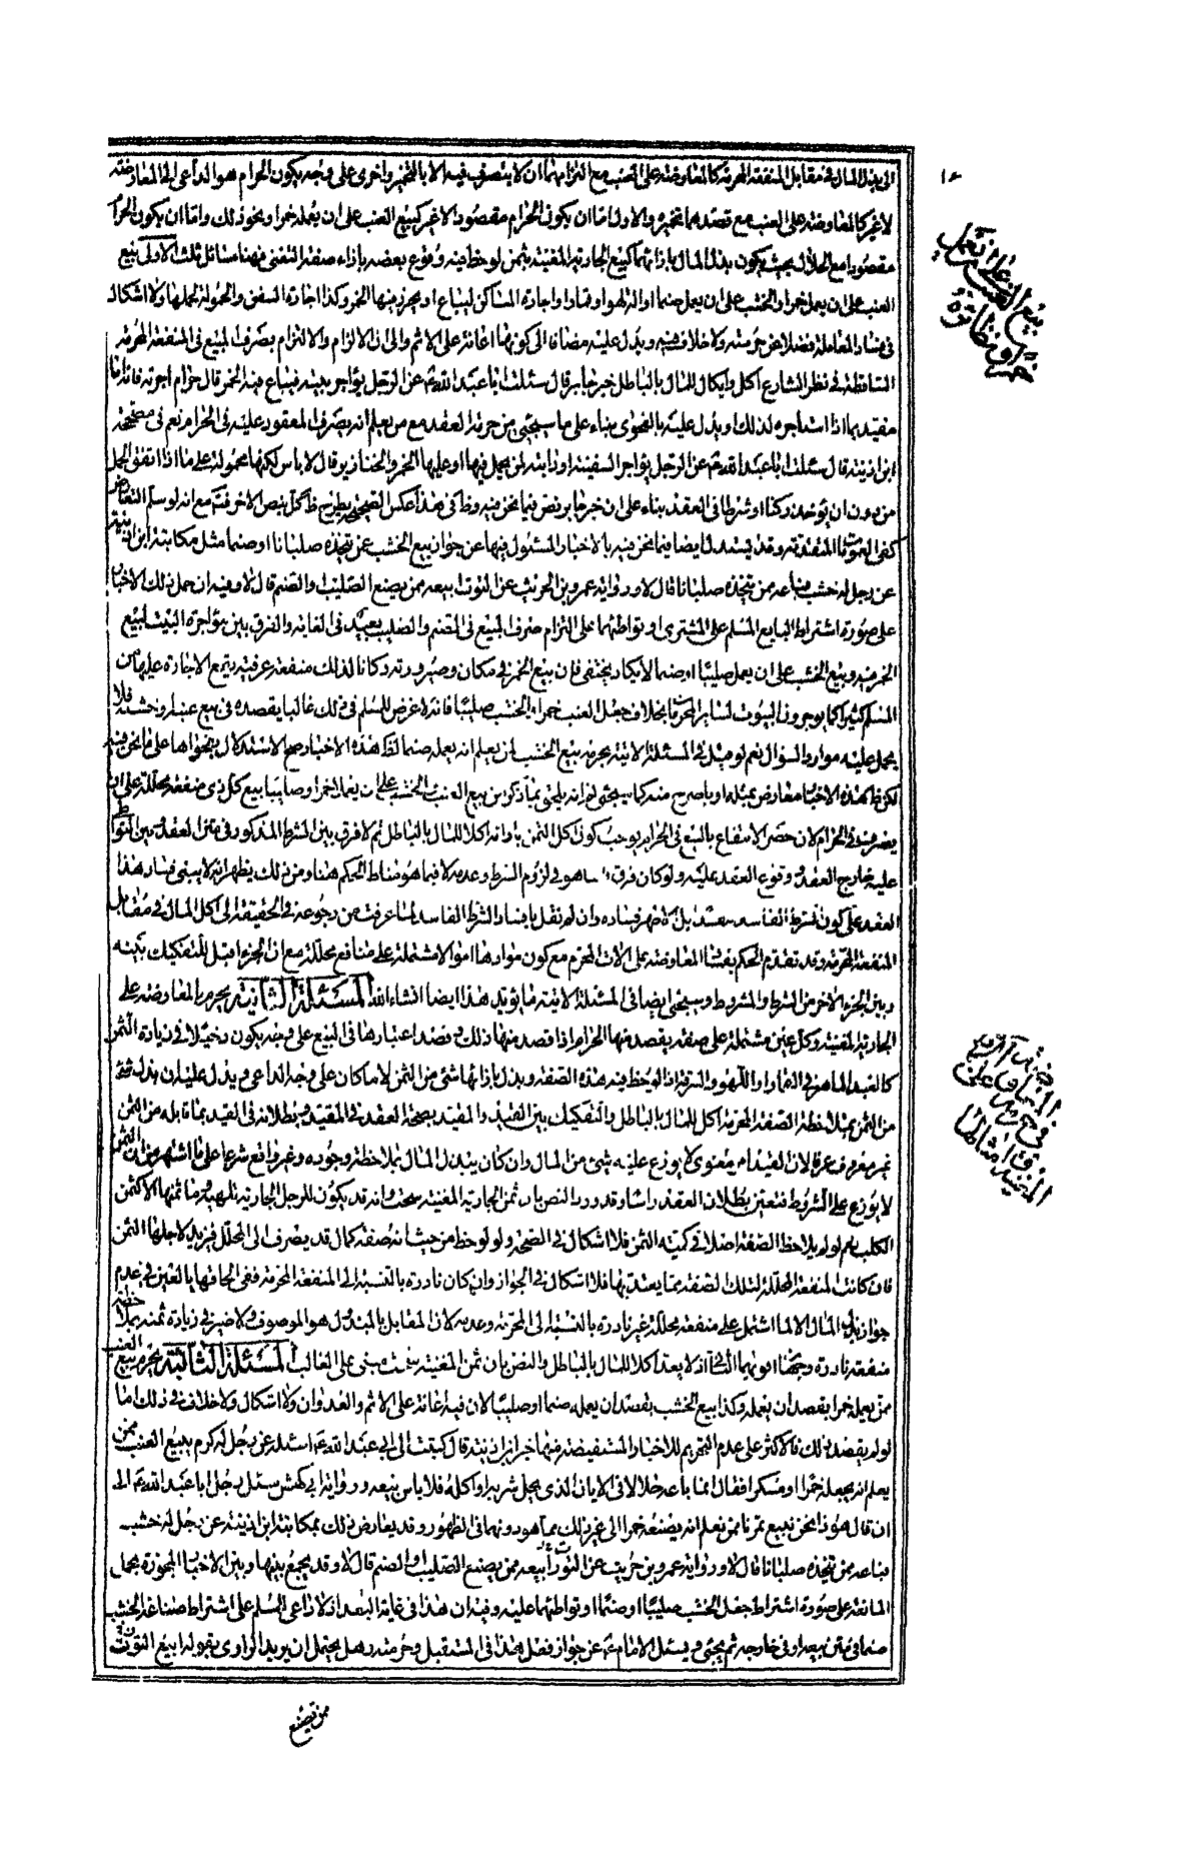 الى بذل المال في مقابل المنفعة المحرمة كالمعاوضة على العنب مع التزامهما ان لا يتصرف فيه الا بالتخمير واخرى على وجه يكون الحرام هو الداعى الى المعاوضة
لا غير كالمعاوضة على العنب مع قصدهما تخميره والاول اما ان يكون الحرام مقصودا لا غير كبيع العنب على ان يعمله خمرا ونحو ذلك واما ان يكون الحرام
مقصودا مع الحلال بحيث يكون بذل المال بازائهما كبيع الجارية المغنية بثمن لوحظ فيه وقوع بعضه بازاء صفة التغنى فهنا مسائل ثلث الاولى بيع
العنب على ان يعمل خمرا والخشب على ان يعمل صنما او الة لهو او قمار او اجارة المساكن ليباع او يحرز فيها الخمر وكذا اجارة السفن والحمولة لحملها ولا اشكال
في فساد المعاملة فضلا عن حرمته ولا خلاف فيه ويدل عليه مضافا الى كونها اعانة على الاثم والى ان الالزام والالتزام بصرف المبيع فى المنفعة المحرمة
الساقطة في نظر الشارع اكل وايكال للمال بالباطل خبر جابر قال سئلت ابا عبد الله عن الرجل يؤاجر بيته فيباع فيه الخمر قال حرام اجرته فانه اما
مقيد بما اذا استاجره لذلك او يدل عليه بالفحوى بناء على ما سيجئ من حرمة العقد مع من يعلم انه يصرف المعقود عليه فى الحرام نعم فى مصححة
ابن اذينة قال سئلت ابا عبد الله عن الرجل يؤاجر السفينة او دابته لمن يحمل فيها او عليها الخمر والخنازير قال لا باس لكنها محمولة على ما اذا اتفق الحمل
من دون ان يؤخذ ركنا او شرطا فى العقد بناء على ان خبر جابر نص فيما نحن فيه وظ فى هذا عكس الصحيحة فيطرح ظ كل بنص الاخر فت مع انه لو سلم التعارض
كفى العمومات المتقدمة وقد يستدل ايضا فيما نحن فيه بالاخبار المسئول فيها عن جواز بيع الخشب عن يتخذه صلبانا او صنما مثل مكاتبة ابن اذينة
عن رجل له خشب فباعه ممن يتخذه صلبانا قال لا ورواية عمرو بن الحريث عن التوت ابيعه ممن يصنع الصليب والصنم قال لا وفيه ان حمل تلك الاخبار
على صورة اشتراط البايع المسلم على المشترى او تواطئهما على التزام صرف المبيع فى الصنم والصليب بعيد فى الغاية والفرق بين مؤاجرة البيت لبيع
الخمر فيه وبيع الخشب على ان يعمل صليبا او صنما لا يكاد يخفى فان بيع الخمر فى مكان وصيرورته دكانا لذلك منفعة عرفية يقع الاجارة عليها من
المسلم كثيرا كما يوجرون البيوت لساير المحرمات بخلاف جعل العنب خمرا والخشب صليبا فانه لا غرض للمسلم فى ذلك غالبا يقصده فى بيع عنبه او خشبه فلا
يحمل عليه موارد السؤال نعم لو قيل فى المسئلة الاتية بحرمة بيع الخشب لمن يعلم انه يعمله صنما لظ هذه الاخبار صح الاستدلال بفحواها على ما نحن فيه
لكن ظ هذه الاخبار معارض بمثله او باصرح منه كما سيجئ ثم انه يلحق بما ذكر من بيع العنب والخشب على ان يعملا خمرا وصليبا بيع كل ذى منفعة محللة على ان
يصرف فى الحرام لان حصر الانتفاع بالبيع فى الحرام يوجب كون اكل الثمن بازائه اكلا للمال بالباطل ثم لا فرق بين الشرط المذكور فى متن العقد وبين التواطئ
عليه خارج العقد ووقوع العقد عليه ولو كان فرق فانما هو فى لزوم الشرط وعدمه لا فيما هو مناط الحكم هنا ومن ذلك يظهر انه لا يبنى فساد هذا
العقد على كون الشرط الفاسد مفسدا بل الاظهر فساده وان لم نقل بافساد الشرط الفاسد لما عرفت من رجوعه فى الحقيقة الى اكل المال فى مقابل
المنفعة المحرمة وقد تقدم الحكم بفساد المعاوضة على الات المحرم مع كون موادها اموالا مشتملة على منافع محللة مع ان الجزء اقبل للتفكيك بينه
وبين الجزء الاخر من الشرط والمشروط وسيجئ ايضا فى المسئلة الاتية ما يؤيد هذا ايضا انشاء الله المسئلة الثانية يحرم المعاوضة على
الجارية المغنية وكل عين مشتملة على صفة يقصد منها الحرام اذا قصد منها ذلك وقصد اعتبارها فى البيع على وجه يكون دخيلا فى زيادة الثمن
كالعبد الماهر فى القمار او اللهو والسرقة اذا لوحظ فيه هذه الصفة وبذل بازائها شئ من الثمن لا ما كان على وجه الداعى ويدل عليه ان بذل شئ
من الثمن بملاحظة الصفة المحرمة اكل للمال بالباطل والتفكيك بين القيد والمقيد بصحة العقد فى المقيد وبطلانه فى القيد بما قابله من الثمن
غير معروف عرفا لان القيد امر معنوى لا يوزع عليه شئ من المال وان كان يبذل المال بملاحظة وجوده وغير واقع شرعا على ما اشتهر من ان الثمن
لا يوزع على الشروط فتعين بطلان العقد راسا وقد ورد النص بان ثمن الجارية المغنية سحت وانه قد يكون للرجل الجارية تلهيه وما ثمنها الا كثمن
الكلب نعم لو لم يلاحظ الصفة اصلا فى كمية الثمن فلا اشكال فى الصحة ولو لوحظ من حيث انه صفة كمال قد يصرف الى المحلل فيزيد لاجلها الثمن
فان كانت المنفعة المحللة لتلك الصفة مما يعتد بها فلا اشكال فى الجواز وان كان نادرة بالنسبة الى المنفعة المحرمة ففى الحاقها بالعين فى عدم
جواز بذل المال الا لما اشتمل على منفعة محللة غير نادرة بالنسبة الى المحرمة وعدمه لان المقابل بالمبذول هو الموصوف ولا ضير فى زيادة ثمنه بملاحظة
منفعة نادرة وجهان اقويهما الثانى اذ لا يعد اكلا للمال بالباطل والنص بان ثمن المغنية سحت مبنى على الغالب المسئلة الثالثة يحرم بيع العنب
ممن يعمله خمرا بقصد ان يعمله وكذا بيع الخشب بقصد ان يعمله صنما او صليبا لان فيه اعانة على الاثم والعدوان ولا اشكال ولا خلاف فى ذلك اما
لو لم يقصد ذلك فالاكثر على عدم التحريم للاخبار المستفيضة منها خبر ابن اذينة قال كتبت الى ابى عبد الله اسئله عن رجل له كرم يبيع العنب ممن
يعلم انه يجعله خمرا او مسكرا فقال انما باعه حلالا فى الابان الذى يحل شربه او اكله فلا باس ببيعه ورواية ابى كهمش سئل رجل ابا عبد الله الى
ان قال هو ذا نحن نبيع تمرنا ممن نعلم انه يصنعه خمرا الى غير ذلك مما هو دونهما فى الظهور وقد يعارض ذلك بمكاتبة ابن اذينة عن رجل له خشب
فباعه ممن يتخذه صلبانا قال لا ورواية عمرو بن حريث عن التوت ابيعه ممن يصنع الصليب او الصنم قال لا وقد يجمع بينها وبين الاخبار المجوزة بحمل
المانعة على صورة اشتراط جعل الخشب صليبا او صنما او تواطئهما عليه وفيه ان هذا فى غاية البعد اذ لا داعى للمسلم على اشتراط صناعة الخشب
صنما فى متن بيعه او فى خارجه ثم يجئ ويسئل الامام عن جواز فعل هذا فى المستقبل وحرمته وهل يحتمل ان يريد الراوى بقوله ابيع التوت
ممن يصنع